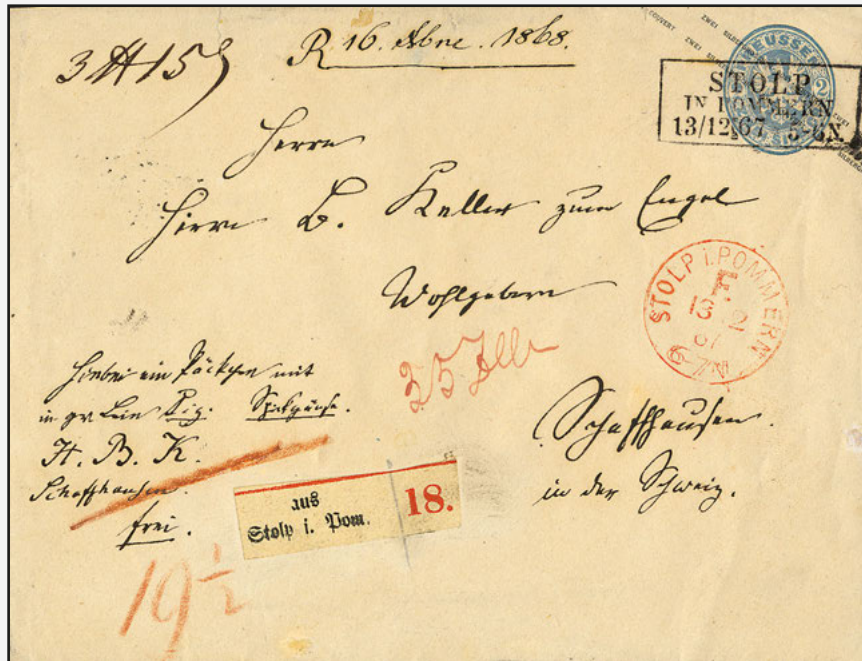 3 ℔ 15
R. 16. Xbre. 1868.
COUVERT ZWEI ZWEI SILBER
PREUSSEN
STOLP
IN POMMERN
13/12.67 5-6N.
Herrn
Herrn B. Keller zum Engel
Wohlgeboren
STOLP i. POMMERN
F.
13 12
67
6-7N
Hiebei ein Päckchen mit
in gr Lein Sig: Spickgänse.
H. B. K.
Schaffhausen.
frei.
35
Schaffhausen.
in der Schweiz.
aus
Stolp i. Pom.
18.
19 1/2